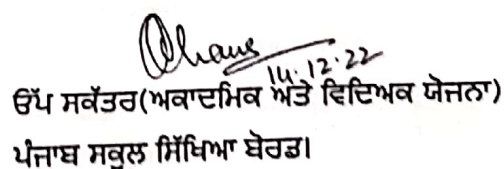 14.12.22
ਉੱਪ ਸਕੱਤਰ(ਅਕਾਦਮਿਕ ਅਤੇ ਵਿਦਿਅਕ ਯੋਜਨਾ)
ਪੰਜਾਬ ਸਕੂਲ ਸਿੱਖਿਆ ਬੋਰਡ।